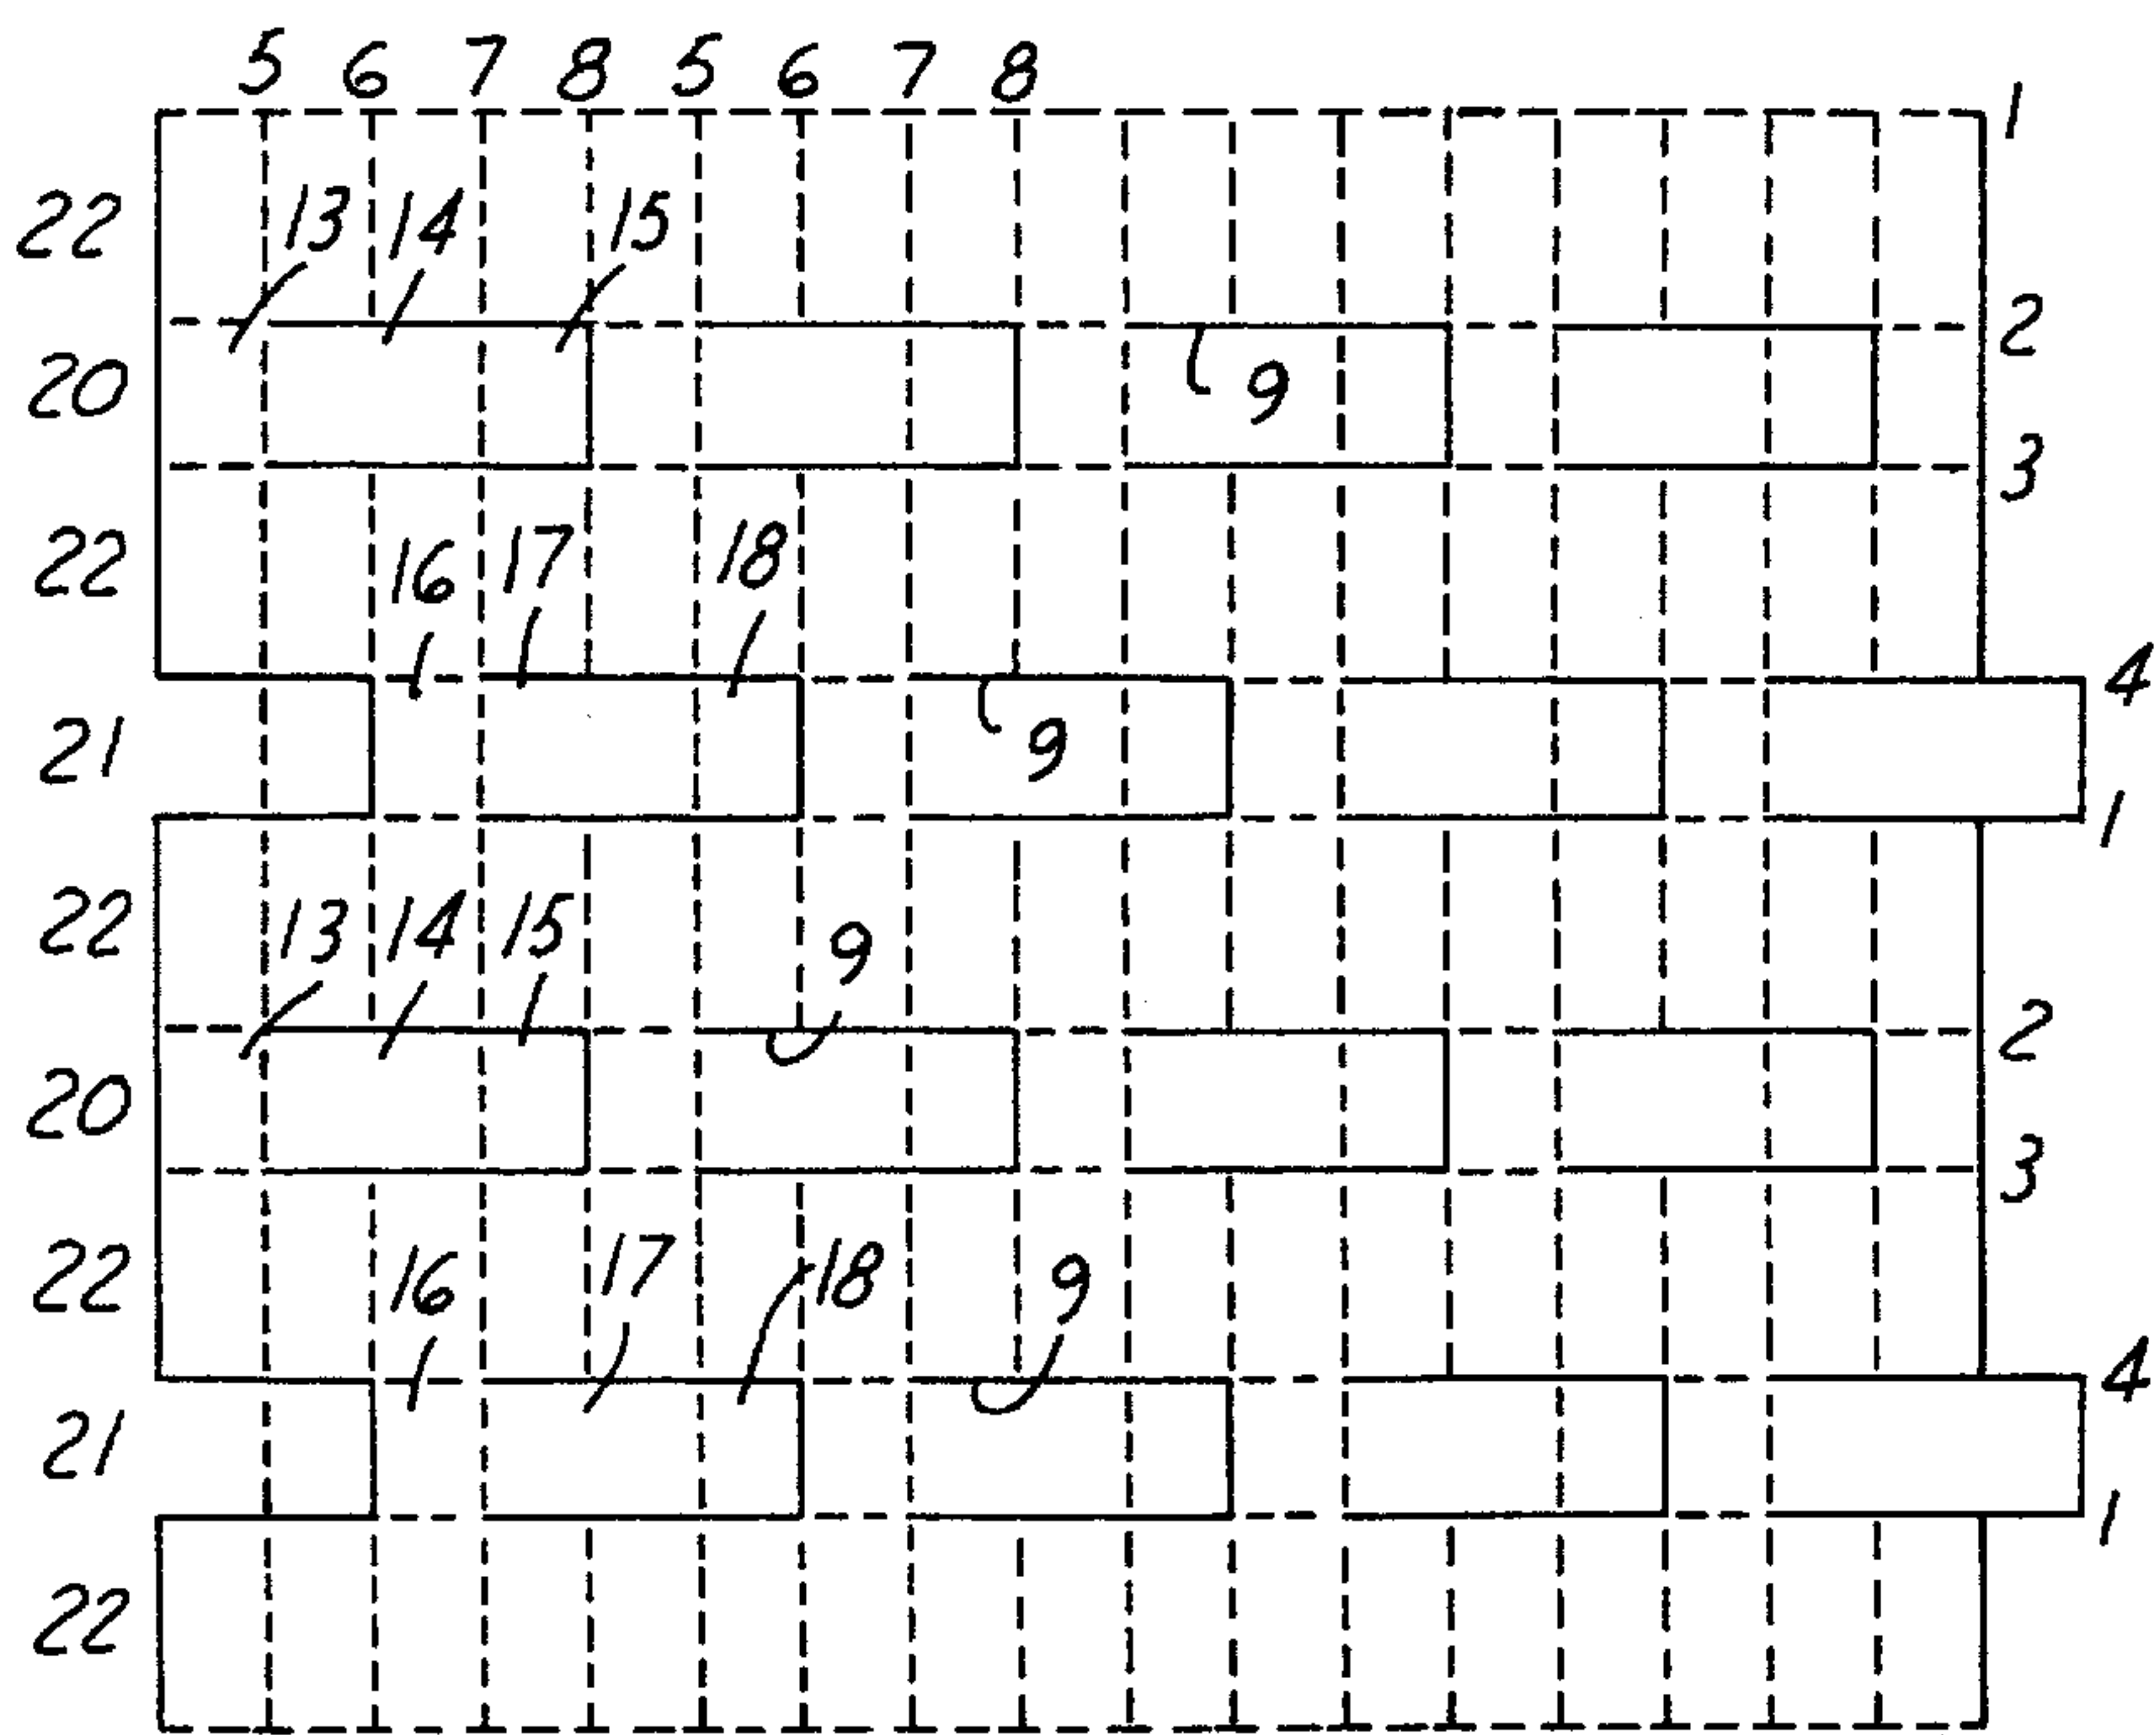 5 6 7 8 5 6 7 8
1
22 13 14 15
2
20 9
3
22 16 17 18
4
21 9
1
22 13 14 15 9
2
20
3
22 16 17 18 9
4
21
1
22